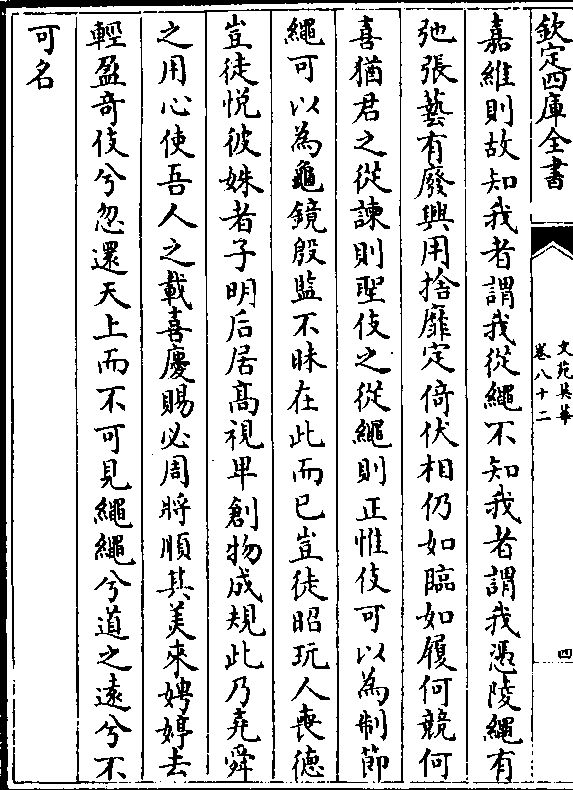 欽定四庫全書
文苑英華
卷八十二
四
嘉維則故知我者謂我從繩不知我者謂我憑陵繩有
弛張藝有廢興用捨靡定倚伏相仍如臨如履何競何
喜猶君之從諫則聖伎之從繩則正惟伎可以為制節
繩可以為龜鏡殷監不昧在此而已豈徒昭玩人喪德
豈徒悅彼姝者子明后居高視卑創物成規此乃堯舜
之用心使吾人之載喜慶賜必周將順其美來娉婷去
輕盈奇伎兮忽還天上而不可見繩繩兮道之遠兮不
可名